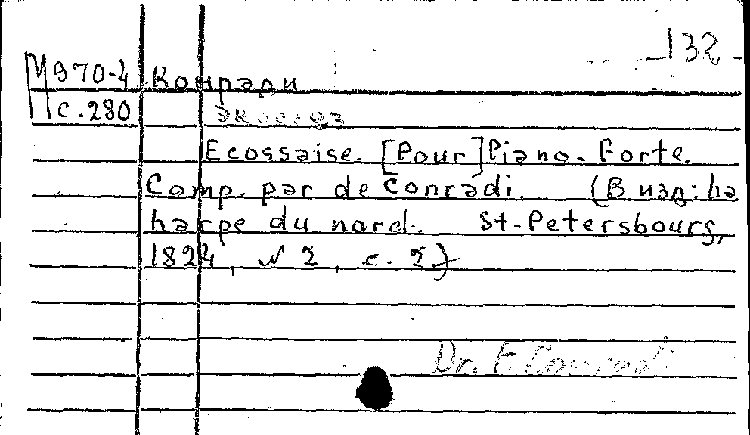 132
М970-4 Конради
с.280 Экоссез
Ecossaise. [Pour] Piano-Forte.
Comp. par de Conradi. (В изд: La
harpe du nord. St-Petersbourg,
1824, N 2, с. 2)
Dr. F. Conradi